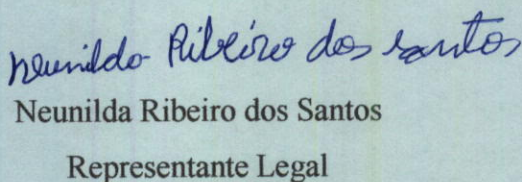 Neunilda Ribeiro dos Santos
Neunilda Ribeiro dos Santos
Representante Legal